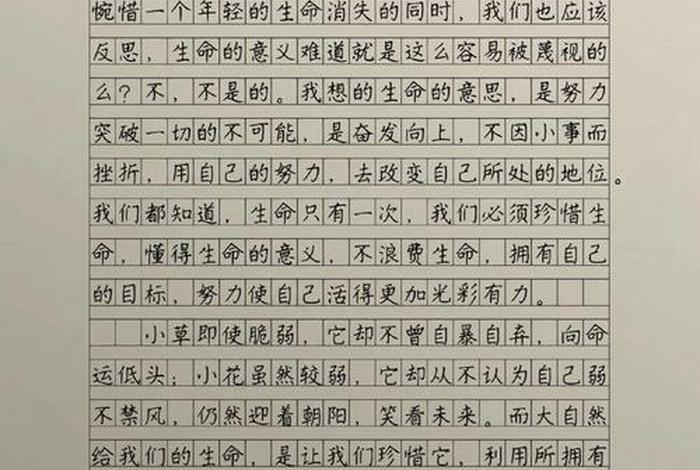 惋惜一个年轻的生命消失的同时，我们也应该
反思，生命的意义难道就是这么容易被蔑视的
么？不，不是的。我想的生命的意思，是努力
突破一切的不可能，是奋发向上，不因小事而
挫折，用自己的努力，去改变自己所处的地位。
我们都知道，生命只有一次，我们必须珍惜生
命，懂得生命的意义，不浪费生命，拥有自己
的目标，努力使自己活得更加光彩有力。
小草即使脆弱，它却不曾自暴自弃，向命
运低头；小花虽然较弱，它却从不认为自己弱
不禁风，仍然迎着朝阳，笑看未来。而大自然
给我们的生命，是让我们珍惜它，利用所拥有